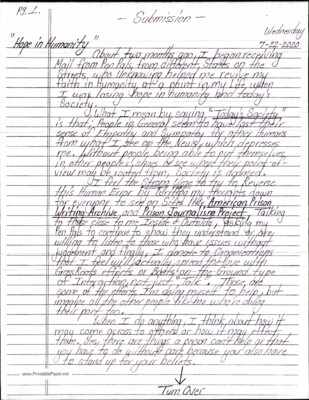 Pg. 1.
- Submission -
Wednesday
7-22-2020
"Hope in Humanity"
About two months ago, I began receiving
Mail from Pen Pals, from different States on the
Streets, who unknowing helped me revive my
faith in humanity at a point in my life when
I was losing hope in humanity and today's
Society.
What I mean by saying "Today's Society"
is that, People in General seem to have lost their
sense of Empathy and Sympathy for other humans
from what I see on the News, which depresses
me. Without people being able to put themselves
in other people's shoes or see where their point-of-
view may be rooted from, Society is doomed.
I feel the Strong Urge to try to Reverse
this Human Error by Writing my thoughts down
for everyone to see on Sites like, American Prison
Writing Archive and Prison Journalism Project, Talking
to those close to me Inside or Outside, asking my
Pen Pals to continue to show they understand or are
willing to listen to those who have issues without
judgment and finally, I donate to Organizations
that I feel will actually spread the love with
GrassRoots efforts or Boots-on-the Ground type
of Interaction, not just "Talk". Those are
some of the efforts I'm doing myself to help, but
imagine all the other people like me who're doing
their part too.
When I do anything, I think about how it
may come across to others or how it may effect
them. Yes, there are things a person can't help or that
you have to do without care because you also have
to stand up for your beliefs.
www.PrintablePaper.net
Turn Over